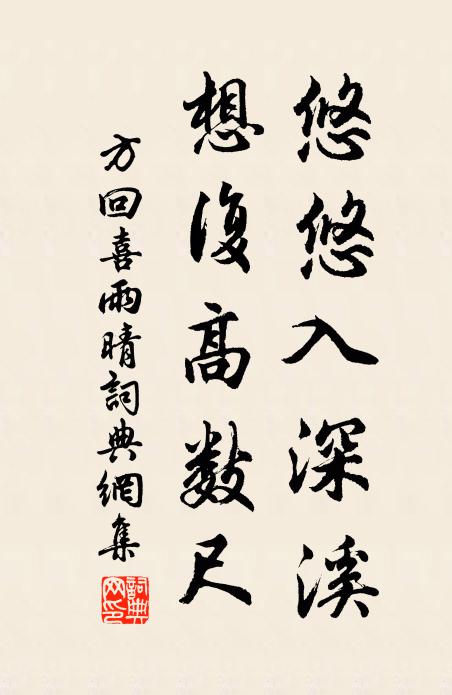 悠悠入深溪
想復高數尺
方回喜雨晴詞典網集
詞典網印